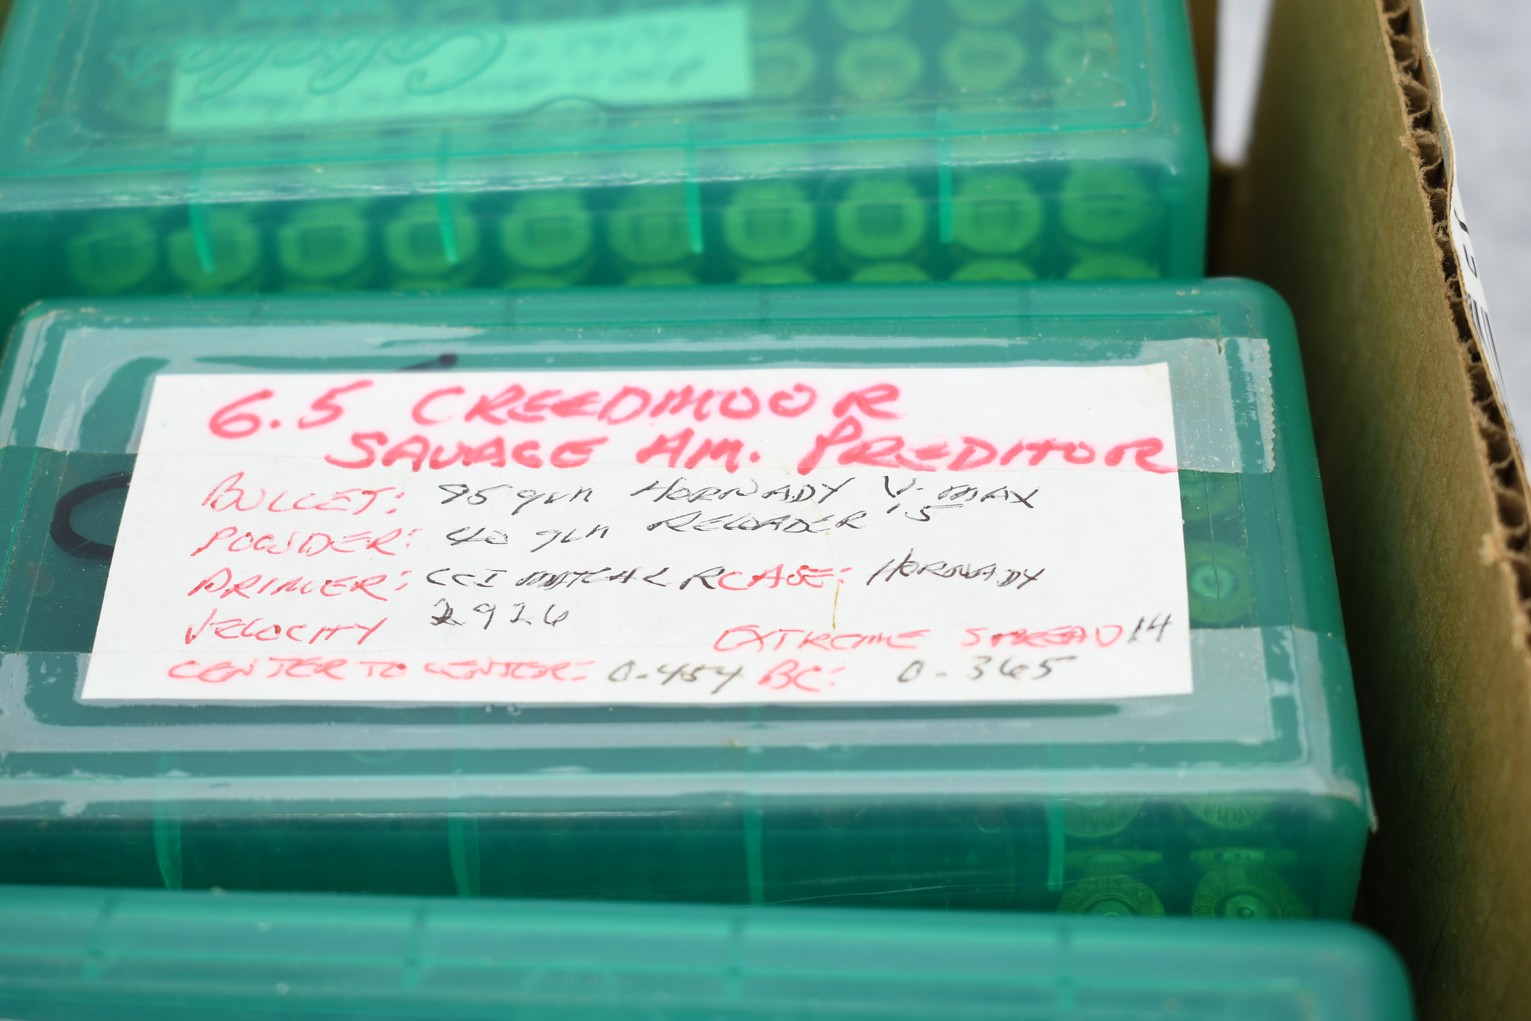 Cabela's
6.5 CREEDMOOR
SAVAGE AM. PREDITOR
BULLET: 95 grn HORNADY V-MAX
POWDER: 40 grn RELOADER 15
PRIMER: CCI MATCH L R CASE: HORNADY
VELOCITY 2926
EXTREME SPREAD 14
CENTER TO CENTER: 0.454 BC: 0.365